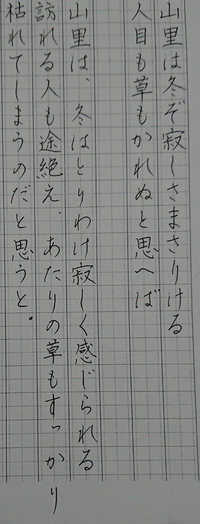 山里は冬ぞ寂しさまさりける
人目も草もかれぬと思へば
山里は、冬はとりわけ寂しく感じられる
訪れる人も途絶え、あたりの草もすっかり
枯れてしまうのだと思うと。